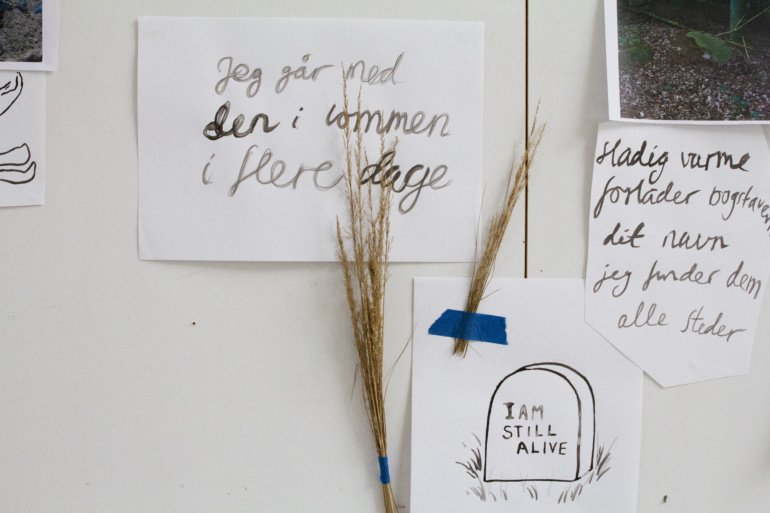 Jeg går med
den i lommen
i flere dage
Hadig varme
forlader bogstaverne
dit navn
jeg finder dem
alle steder
I AM
STILL
ALIVE